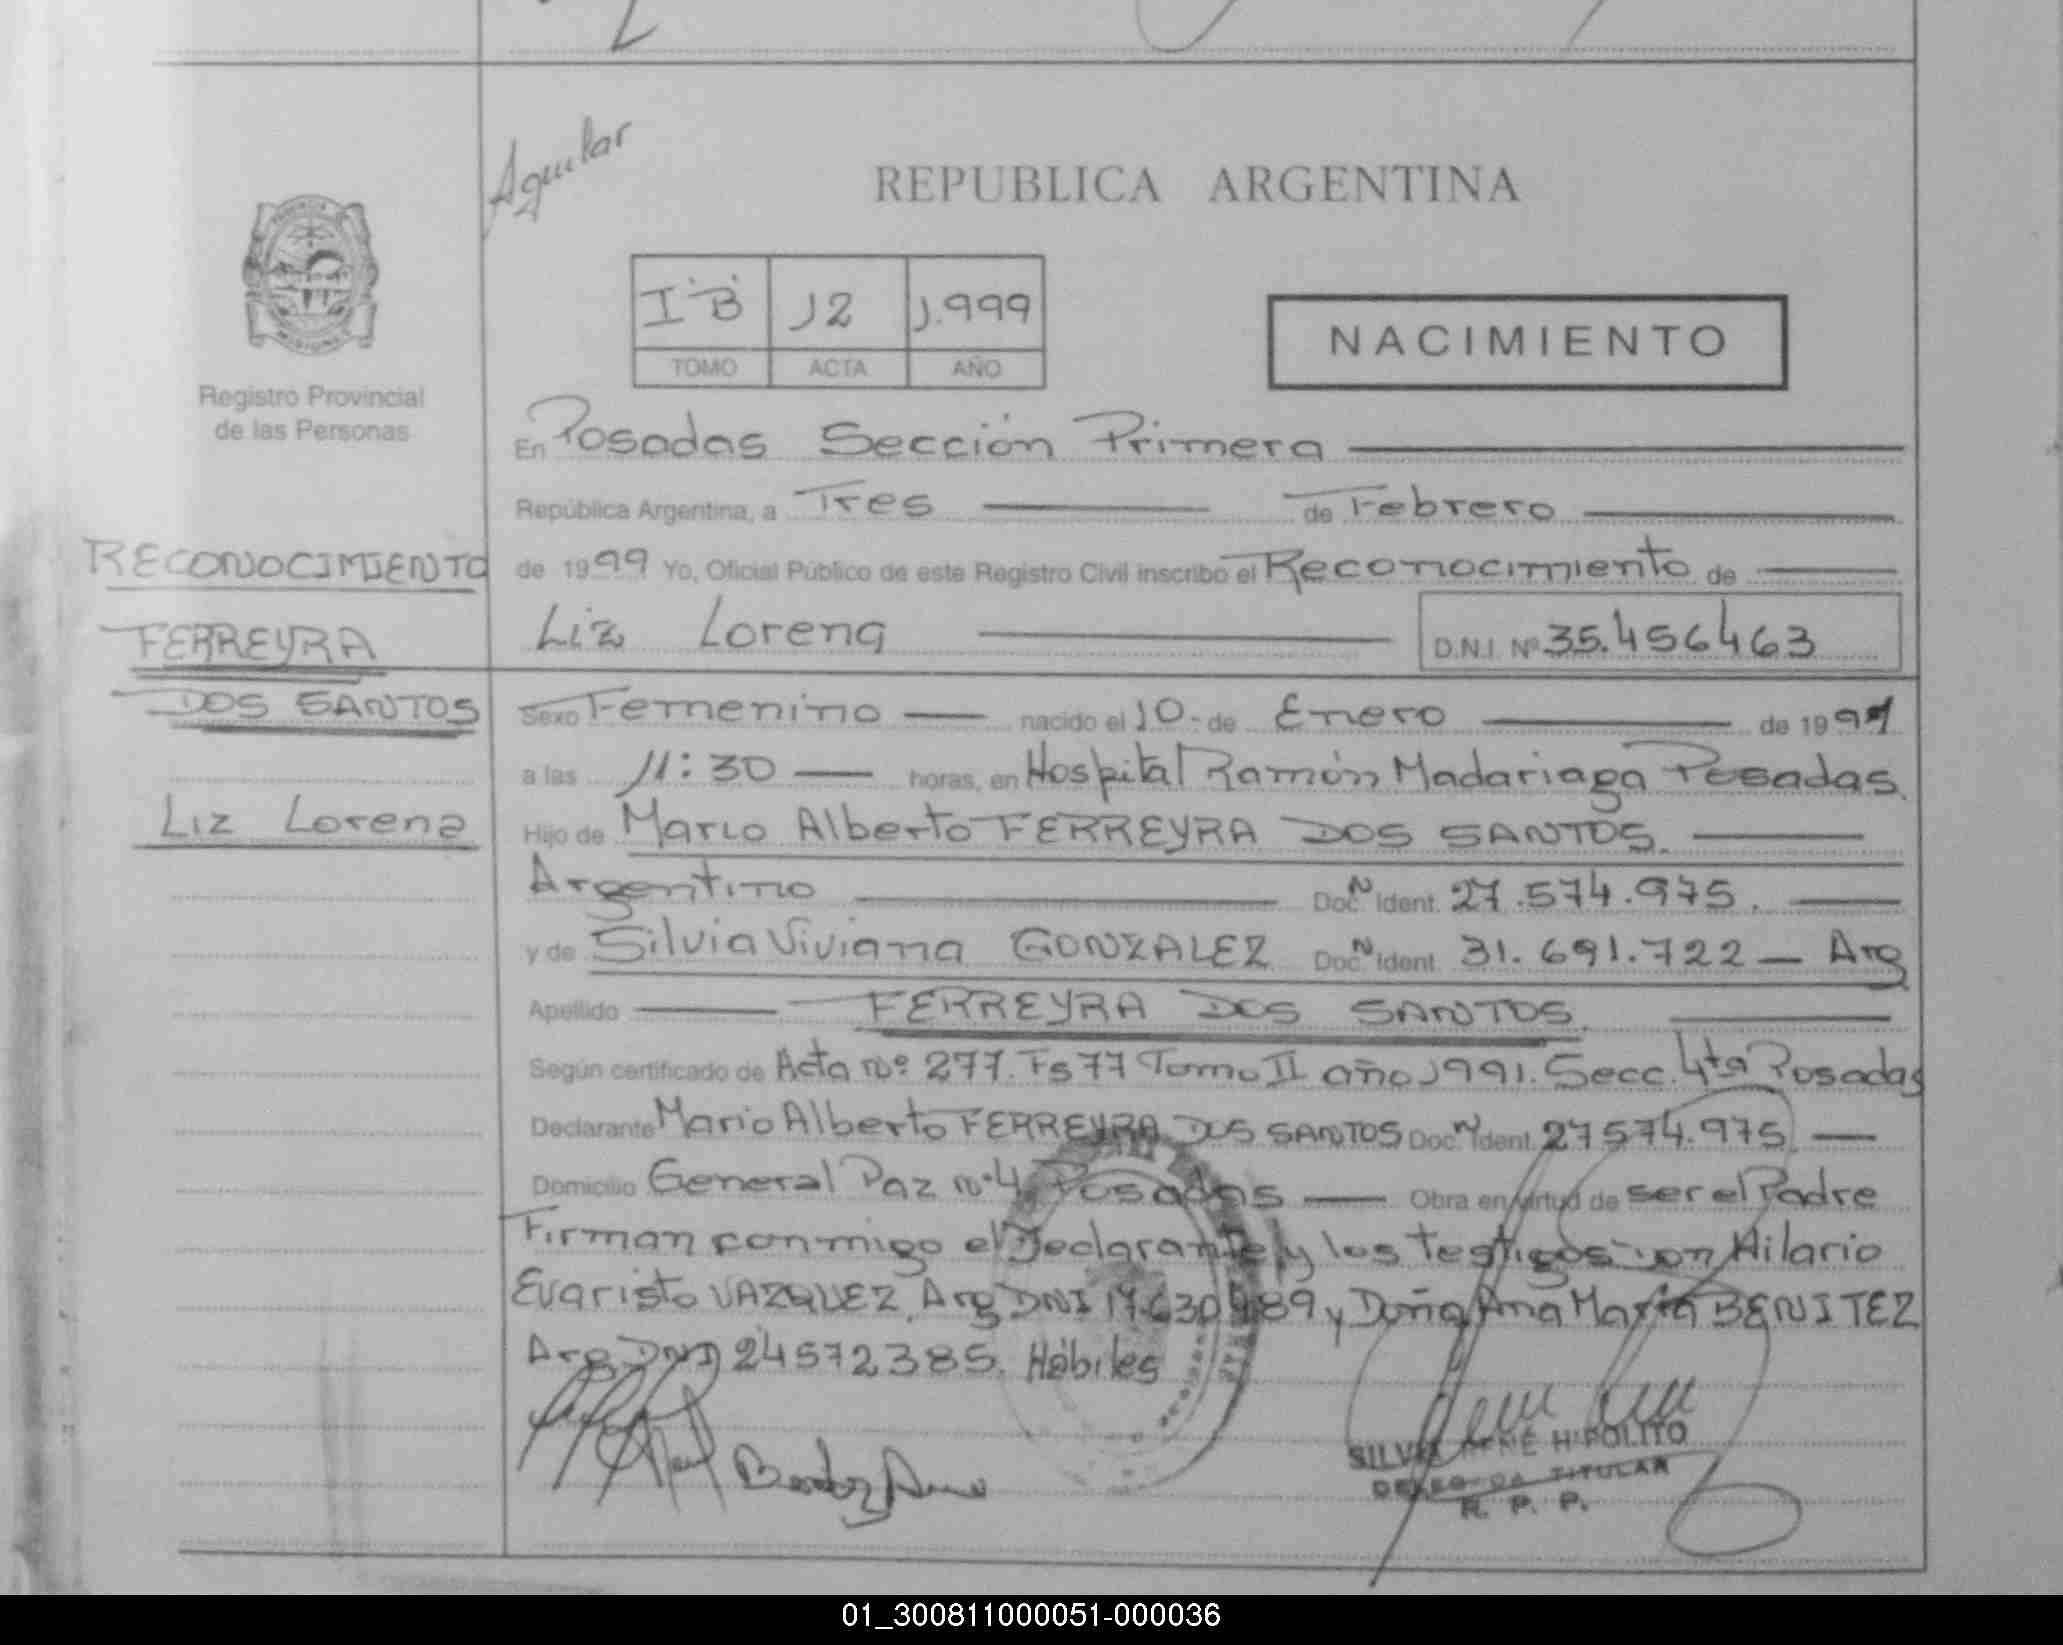 Aguilar
REPUBLICA ARGENTINA
I "B" 12 1.999
TOMO ACTA AÑO
NACIMIENTO
Registro Provincial
de las Personas
En Posadas Sección Primera
República Argentina, a Tres de Febrero
RECONOCIMIENTO
de 1999 Yo, Oficial Público de este Registro Civil inscribo el Reconocimiento de
FERREYRA
Liz Lorena D.N.I. Nº 35.456463
DOS SANTOS
Sexo Femenino nacido el 10. de Enero de 1991
a las 11:30 horas, en Hospital Ramón Madariaga Posadas.
Liz Lorena
Hijo de Mario Alberto FERREYRA DOS SANTOS.
Argentino Doc. N Ident. 27.574.975.
y de Silvia Viviana GONZALEZ Doc. N Ident. 31.691.722 — Arg
Apellido FERREYRA DOS SANTOS.
Según certificado de Acta nº 277. Fs 77 Tomo II año 1991. Secc. 4ta Posadas
Declarante Mario Alberto FERREYRA DOS SANTOS Doc. N Ident. 27574.975
Domicilio General Paz nº 4 Posadas Obra en virtud de ser el Padre
Firman conmigo el Declarante y los testigos Don Hilario
Evaristo VAZQUEZ, Arg DNI y Doña Ana María BENITEZ
Arg DNI 24572385. Hábiles
Benitez Ana
SILVIA RENÉ HIPOLITO
DELEGADA TITULAR
R. P. P.
01_300811000051-000036